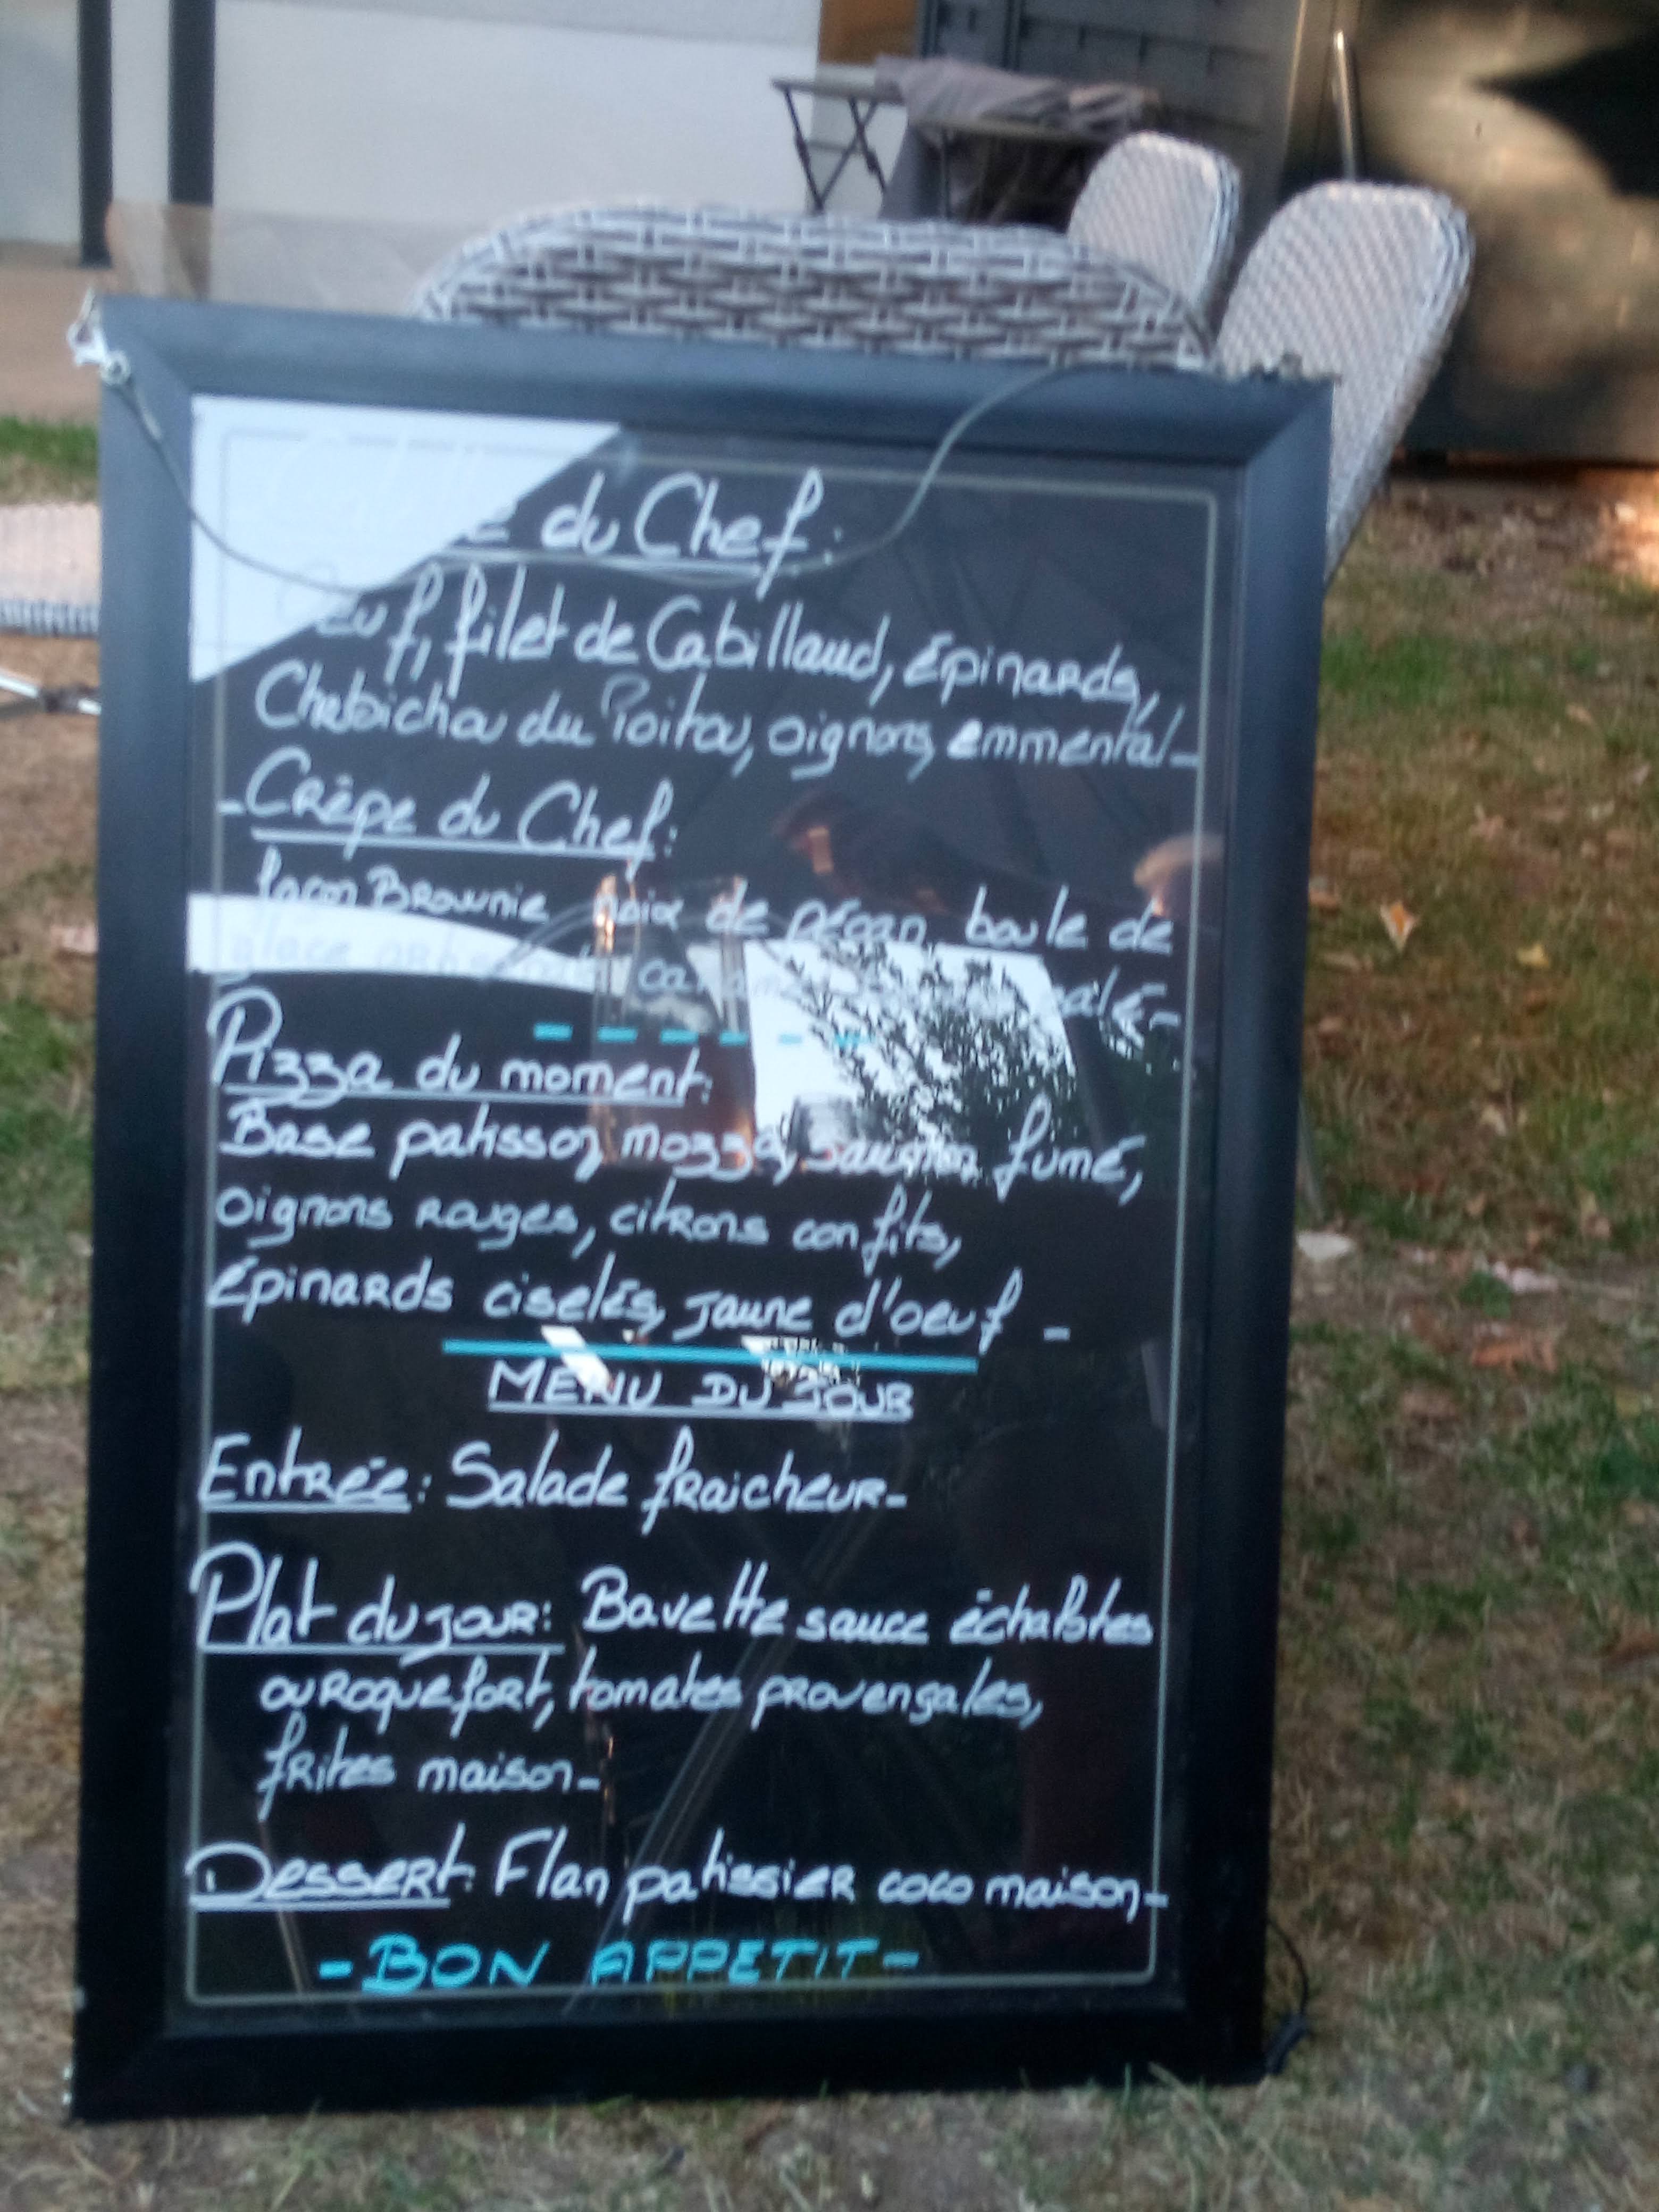 du Chef:
filet de Cabillaud, épinards,
Chabichou du Poitou, oignons, emmental-
-Crêpe du Chef:
façon Brownie noix de pécan, boule de
glace artisanale
Pizza du moment:
Base patisson, mozza, saumon fumé,
oignons rouges, citrons confits,
épinards ciselés, jaune d'oeuf -
MENU DU JOUR
Entrée: Salade fraicheur-
Plat du jour: Bavette sauce échalotes
ou Roquefort, tomates provençales,
frites maison-
Dessert: Flan patissier coco maison-
-BON APPETIT-